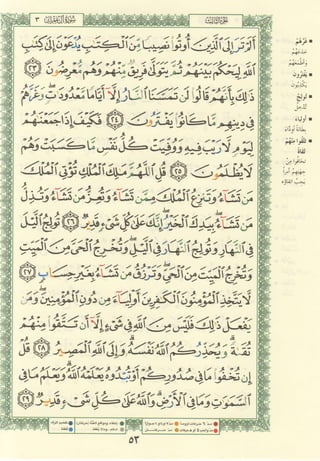 سورة آل عمران ٣
الجزء الثالث
أَلَمْ تَرَ إِلَى ٱلَّذِينَ أُوتُوا۟ نَصِيبًا مِّنَ ٱلْكِتَٰبِ يُدْعَوْنَ إِلَىٰ كِتَٰبِ
ٱللَّهِ لِيَحْكُمَ بَيْنَهُمْ ثُمَّ يَتَوَلَّىٰ فَرِيقٌ مِّنْهُمْ وَهُم مُّعْرِضُونَ ٢٣
ذَٰلِكَ بِأَنَّهُمْ قَالُوا۟ لَن تَمَسَّنَا ٱلنَّارُ إِلَّآ أَيَّامًا مَّعْدُودَٰتٍ وَغَرَّهُمْ
فِى دِينِهِم مَّا كَانُوا۟ يَفْتَرُونَ ٢٤ فَكَيْفَ إِذَا جَمَعْنَٰهُمْ
لِيَوْمٍ لَّا رَيْبَ فِيهِ وَوُفِّيَتْ كُلُّ نَفْسٍ مَّا كَسَبَتْ وَهُمْ
لَا يُظْلَمُونَ ٢٥ قُلِ ٱللَّهُمَّ مَٰلِكَ ٱلْمُلْكِ تُؤْتِى ٱلْمُلْكَ
مَن تَشَآءُ وَتَنزِعُ ٱلْمُلْكَ مِمَّن تَشَآءُ وَتُعِزُّ مَن تَشَآءُ وَتُذِلُّ
مَن تَشَآءُ بِيَدِكَ ٱلْخَيْرُ إِنَّكَ عَلَىٰ كُلِّ شَىْءٍ قَدِيرٌ ٢٦ تُولِجُ ٱلَّيْلَ
فِى ٱلنَّهَارِ وَتُولِجُ ٱلنَّهَارَ فِى ٱلَّيْلِ وَتُخْرِجُ ٱلْحَىَّ مِنَ ٱلْمَيِّتِ
وَتُخْرِجُ ٱلْمَيِّتَ مِنَ ٱلْحَىِّ وَتَرْزُقُ مَن تَشَآءُ بِغَيْرِ حِسَابٍ ٢٧
لَّا يَتَّخِذِ ٱلْمُؤْمِنُونَ ٱلْكَٰفِرِينَ أَوْلِيَآءَ مِن دُونِ ٱلْمُؤْمِنِينَ وَمَن
يَفْعَلْ ذَٰلِكَ فَلَيْسَ مِنَ ٱللَّهِ فِى شَىْءٍ إِلَّآ أَن تَتَّقُوا۟ مِنْهُمْ
تُقَىٰةً وَيُحَذِّرُكُمُ ٱللَّهُ نَفْسَهُۥ وَإِلَى ٱللَّهِ ٱلْمَصِيرُ ٢٨ قُلْ
إِن تُخْفُوا۟ مَا فِى صُدُورِكُمْ أَوْ تُبْدُوهُ يَعْلَمْهُ ٱللَّهُ وَيَعْلَمُ مَا فِى
ٱلسَّمَٰوَٰتِ وَمَا فِى ٱلْأَرْضِ وَٱللَّهُ عَلَىٰ كُلِّ شَىْءٍ قَدِيرٌ ٢٩
غَرَّهُمْ
يَفْتَرُونَ
تُولِجُ
أولياء
تتقوا منهم
تقاة
٥٣